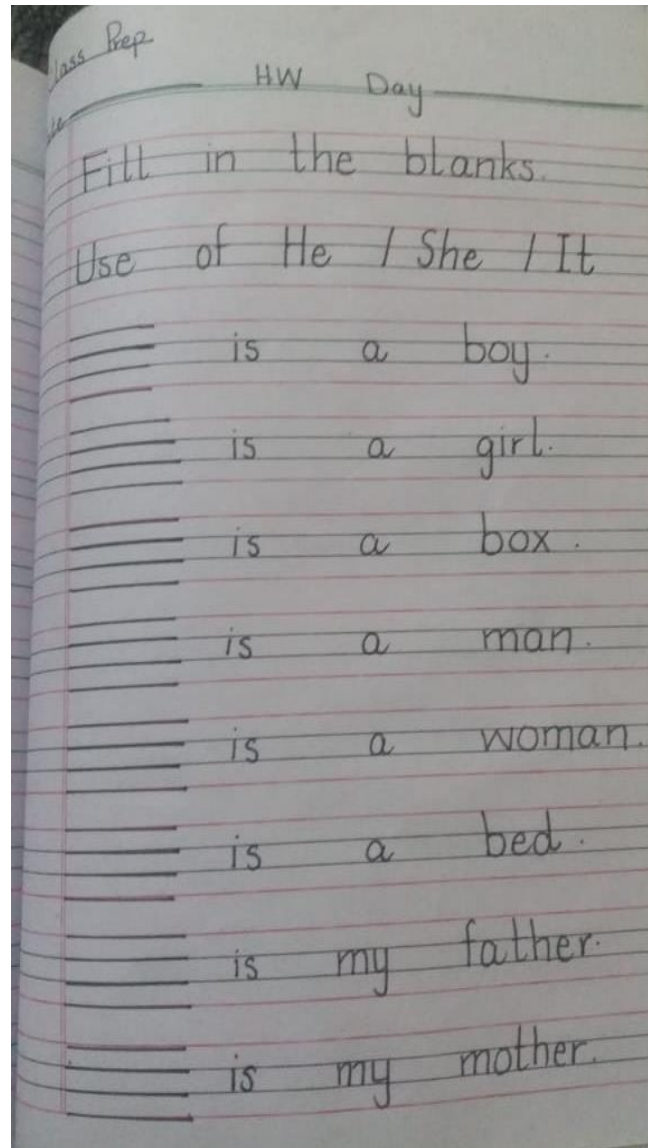 Class Prep
HW Day
Fill in the blanks.
Use of He / She / It
is a boy.
is a girl.
is a box.
is a man.
is a woman.
is a bed.
is my father.
is my mother.